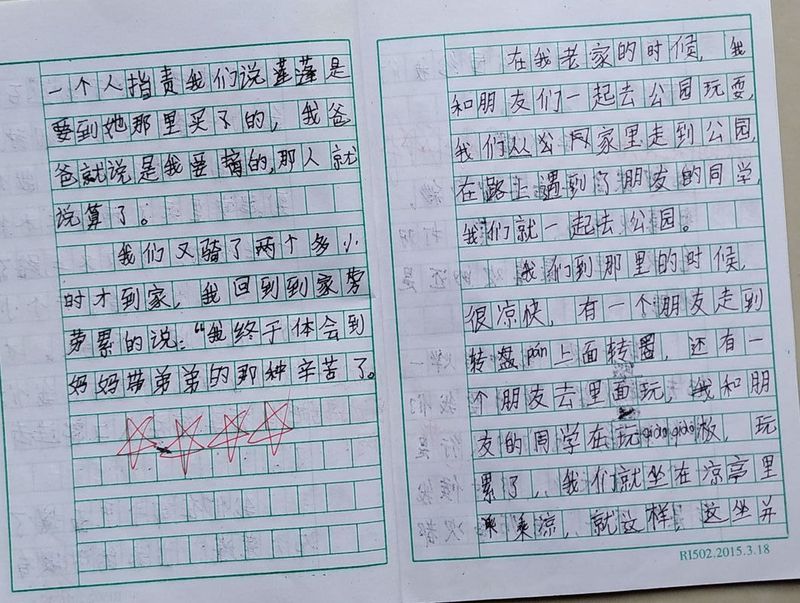 一个人指责我们说莲蓬是
要到她那里买了的，我爸
爸就说是我要摘的，那人就
说算了。
我们又骑了两个多小
时才到家，我回到到家旁
劳累的说：“我终于体会到
妈妈带弟弟的那种辛苦了。
在我老家的时候，我
和朋友们一起去公园玩耍，
我们从公月家里走到公园，
在路上遇到了朋友的同学，
我们就一起去公园。
我们到那里的时候，
很凉快，有一个朋友走到
转盘pán上面转圈，还有一
个朋友去里面玩，我和朋
友的同学在玩qiāoqiāo板，玩
累了，我们就坐在凉亭里
乘凉，就这样，这坐并
RI502.2015.3.18